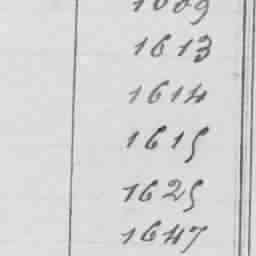 1609
1613
1614
1615
1625
1647